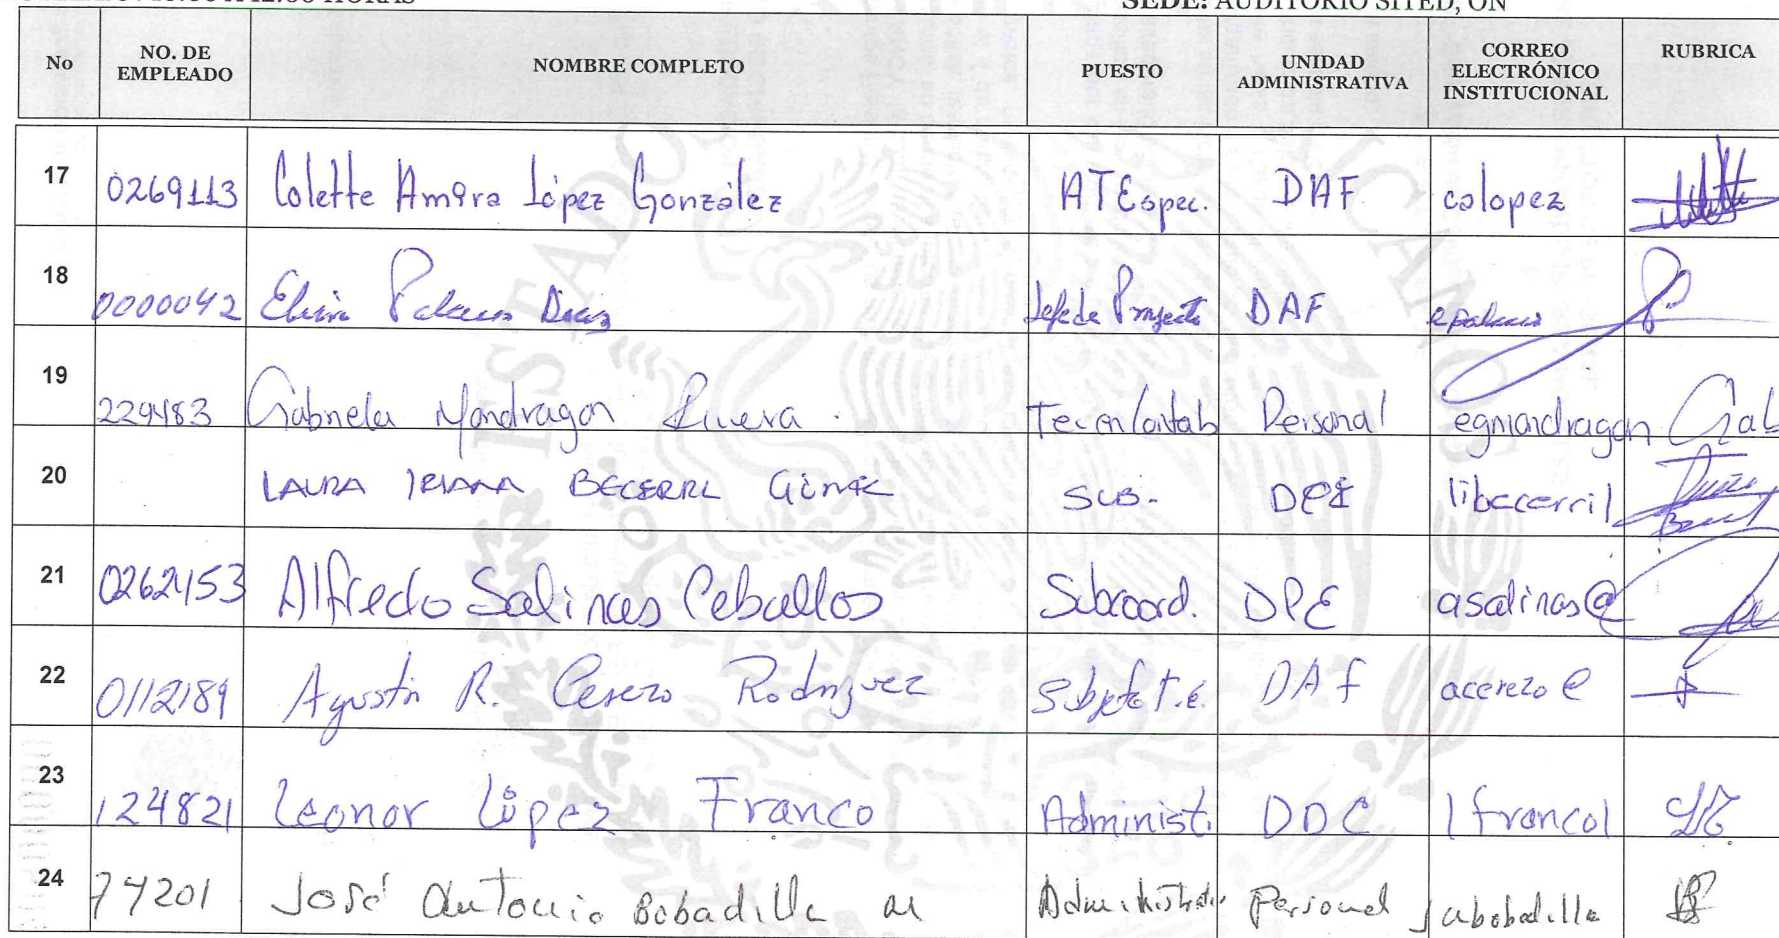 SEDE: AUDITORIO SITED, ON
No NO. DE EMPLEADO NOMBRE COMPLETO PUESTO UNIDAD ADMINISTRATIVA CORREO ELECTRÓNICO INSTITUCIONAL RUBRICA
17 0269113 Colette Amara López González ATEspec. DAF calopez
18 0000042 Palacios Jefe de Proyecto DAF epalacios
19 229483 Gabriela Mondragon Rivera. Tec en Contab Personal egmondragon Gab
20 LAURA IRIANA BECERRIL GÓMEZ SUB. DPE libecerril
21 0262153 Alfredo Salinas Ceballos Subcoord. DPE asalinas@
22 0112189 Agustín R. Cerezo Rodríguez Subjefe T.E. DAF acerezo@
23 124821 Leonor López Franco Administ. DDC lfrancol
24 77201 José Antonio Bobadilla M Administrativo Personal jabobadilla